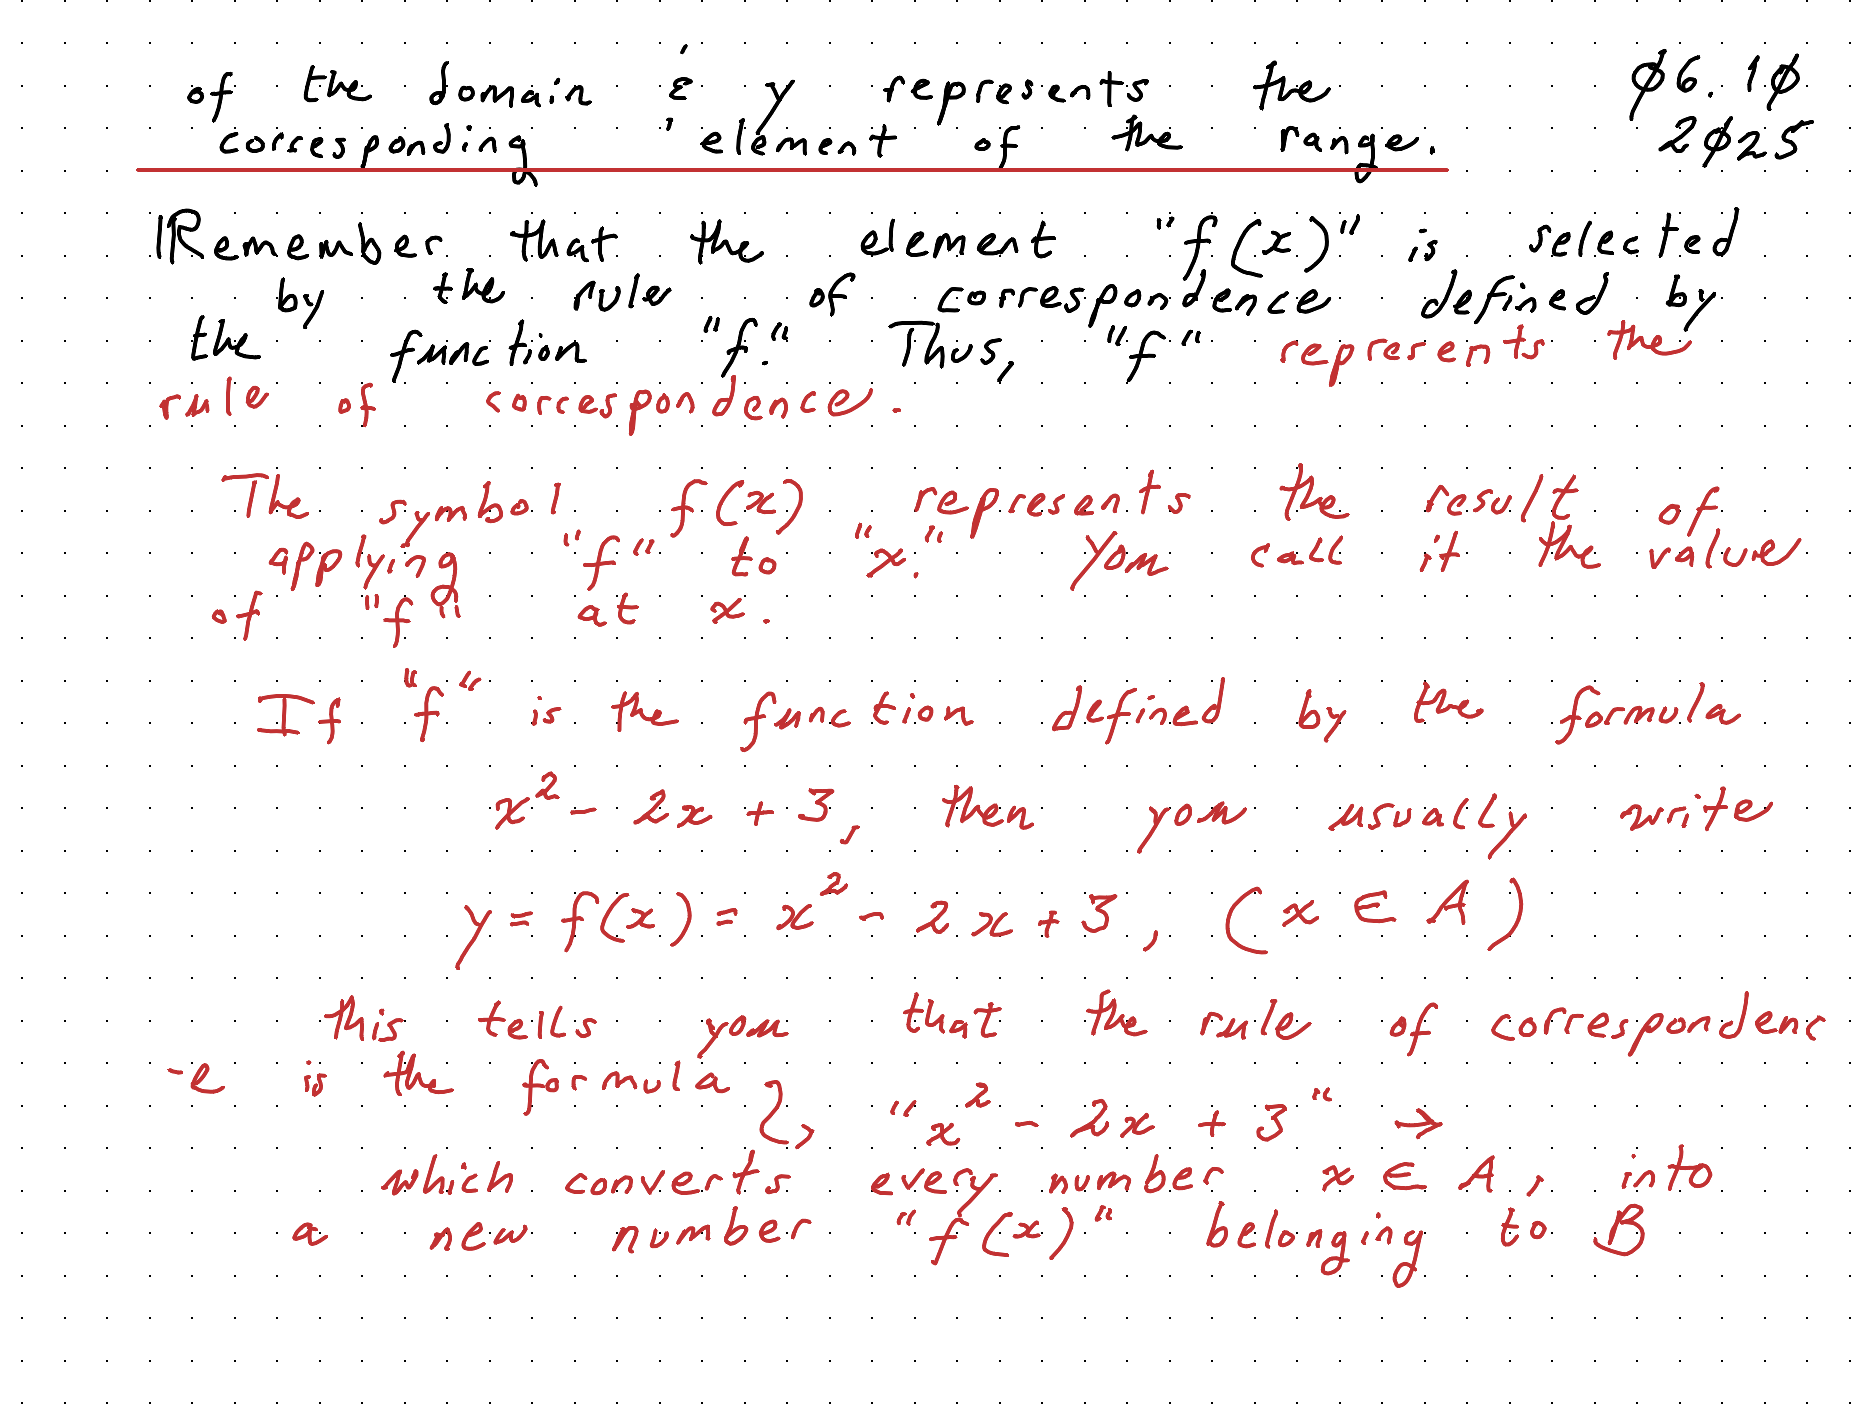 of the domain & y represents the
Ø6.1Ø
corresponding element of the range.
2Ø25
Remember that the element "f(x)" is selected
by the rule of correspondence defined by
the function "f." Thus, "f" represents the
rule of correspondence.
The symbol f(x) represents the result of
applying "f" to "x." You call it the value
of "f" at x.
If "f" is the function defined by the formula
x² - 2x + 3, then you usually write
y = f(x) = x² - 2x + 3, (x ∈ A)
this tells you that the rule of correspondenc
-e is the formula, "x² - 2x + 3" →
which converts every number x ∈ A, into
a new number "f(x)" belonging to B